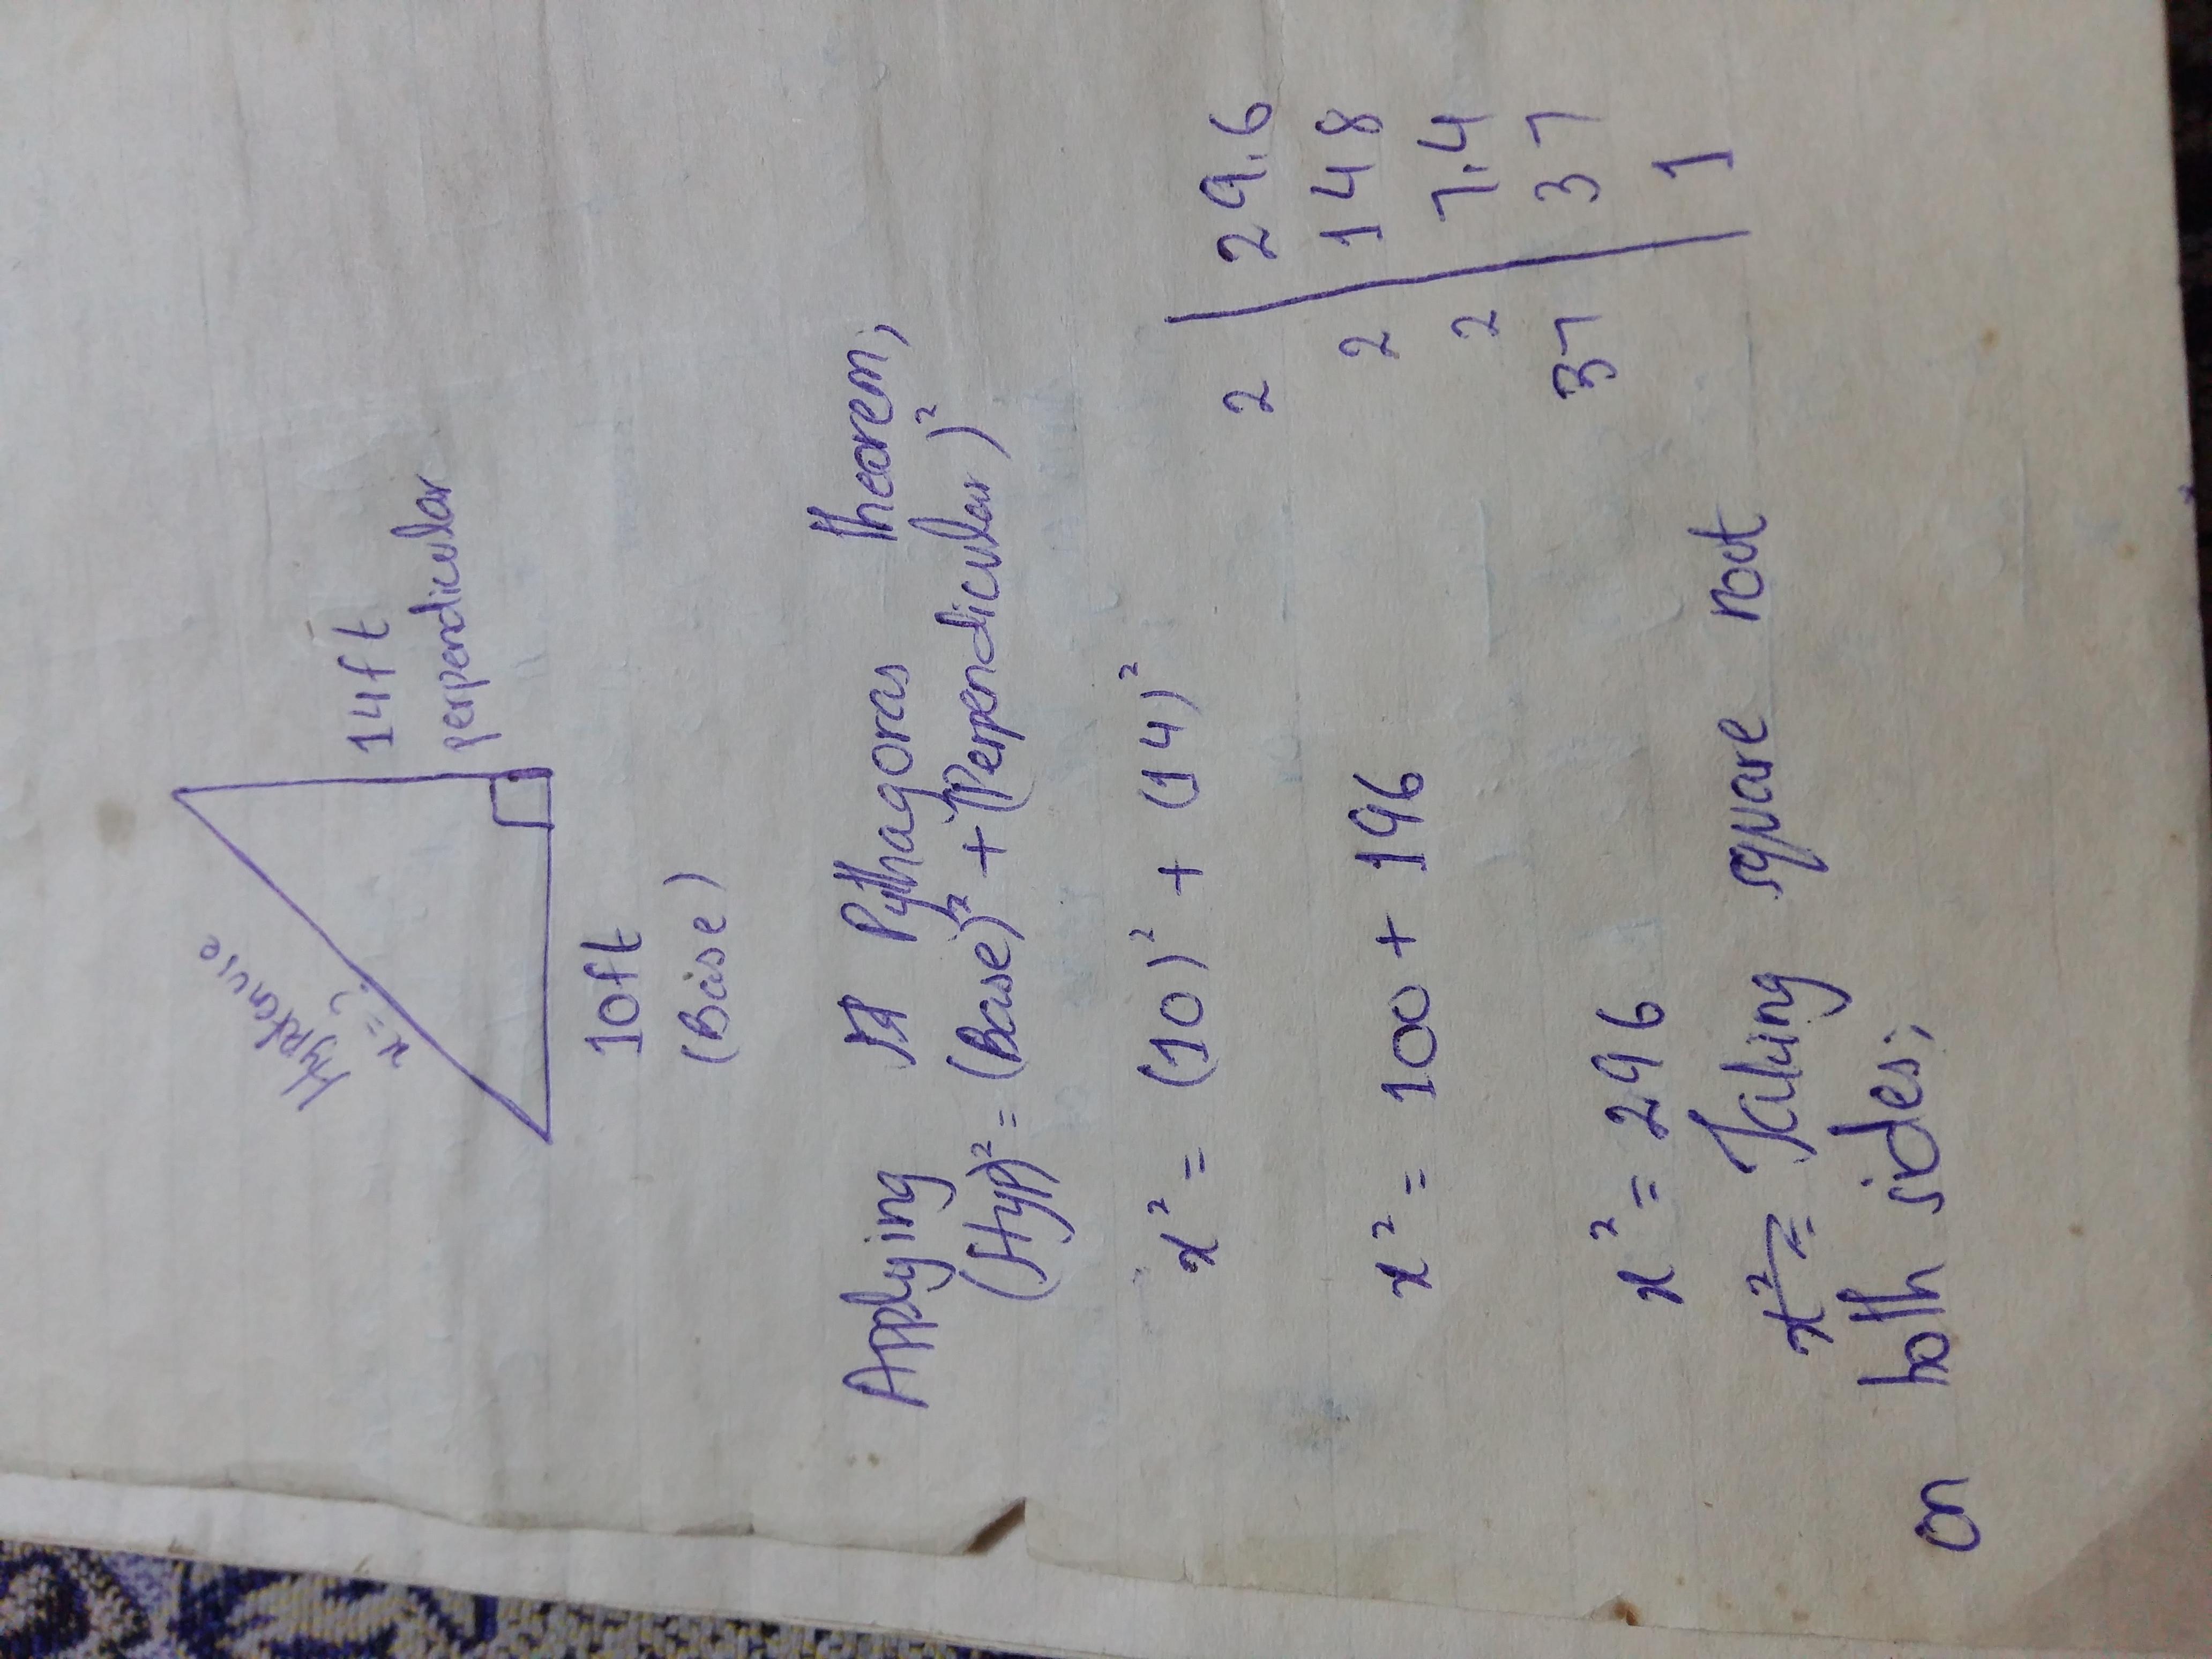 Hyptenuse
x = ?
14ft
perpendicular
10ft
(Base)
Applying Pythagoras theorem,
(Hyp)² = (Base)² + (Perpendicular)²
x² = (10)² + (14)²
x² = 100 + 196
x² = 296
x² = Taking square root
on both sides;
2 | 29.6
2 | 148
2 | 7.4
37 | 37
1